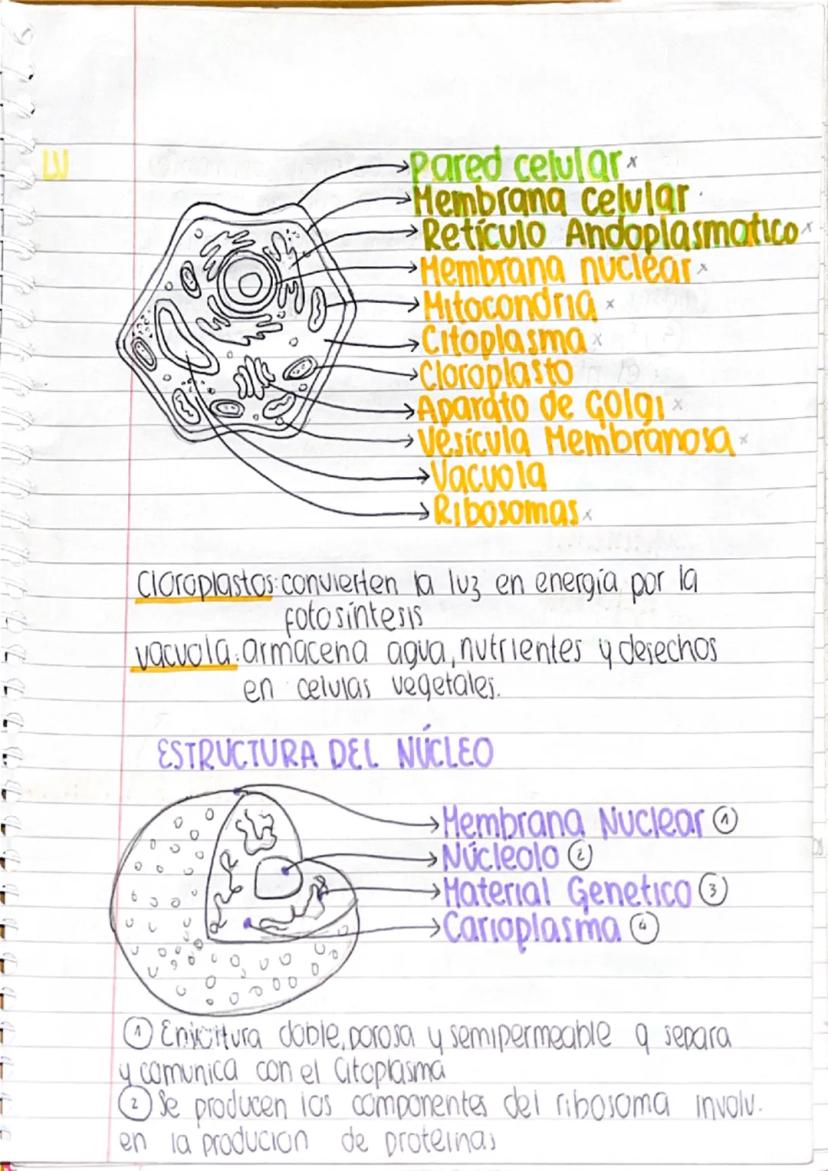 Pared celular x
Membrana Celular
Retículo Andoplasmatico x
Membrana nuclear x
Mitocondria x
Citoplasma x
Cloroplasto
Aparato de Golgi x
Vesícula Membranosa x
Vacuola
Ribosomas x
Cloroplastos: convierten la luz en energía por la
fotosíntesis
vacuola: armacena agua, nutrientes y desechos
en celulas vegetales.
ESTRUCTURA DEL NÚCLEO
Membrana Nuclear ①
Núcleolo ②
Material Genetico ③
Carioplasma ④
① doble, porosa y semipermeable q separa
y comunica con el Citoplasma
② Se producen los componentes del ribosoma involv.
en la producion de proteinas